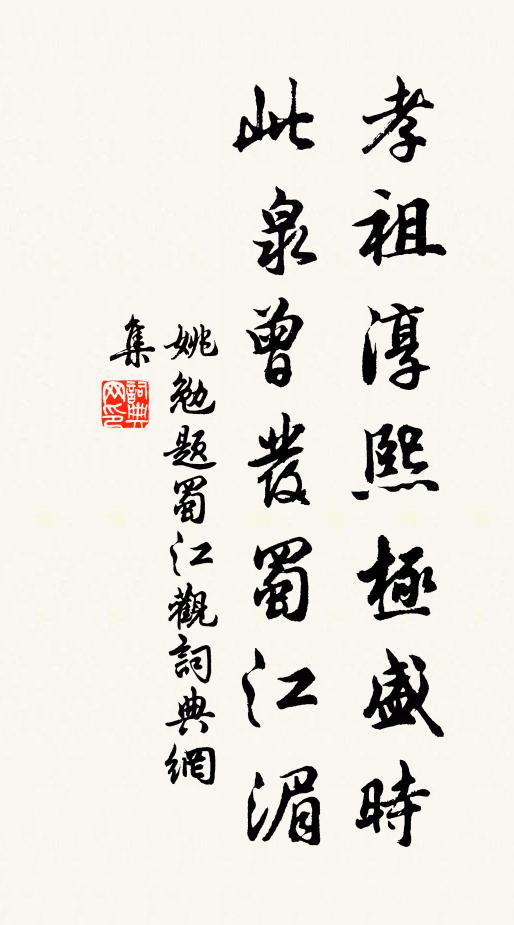 孝祖淳熙極盛時
此泉曾發蜀江湄
姚勉題蜀江觀詞典網
集
詞典網印